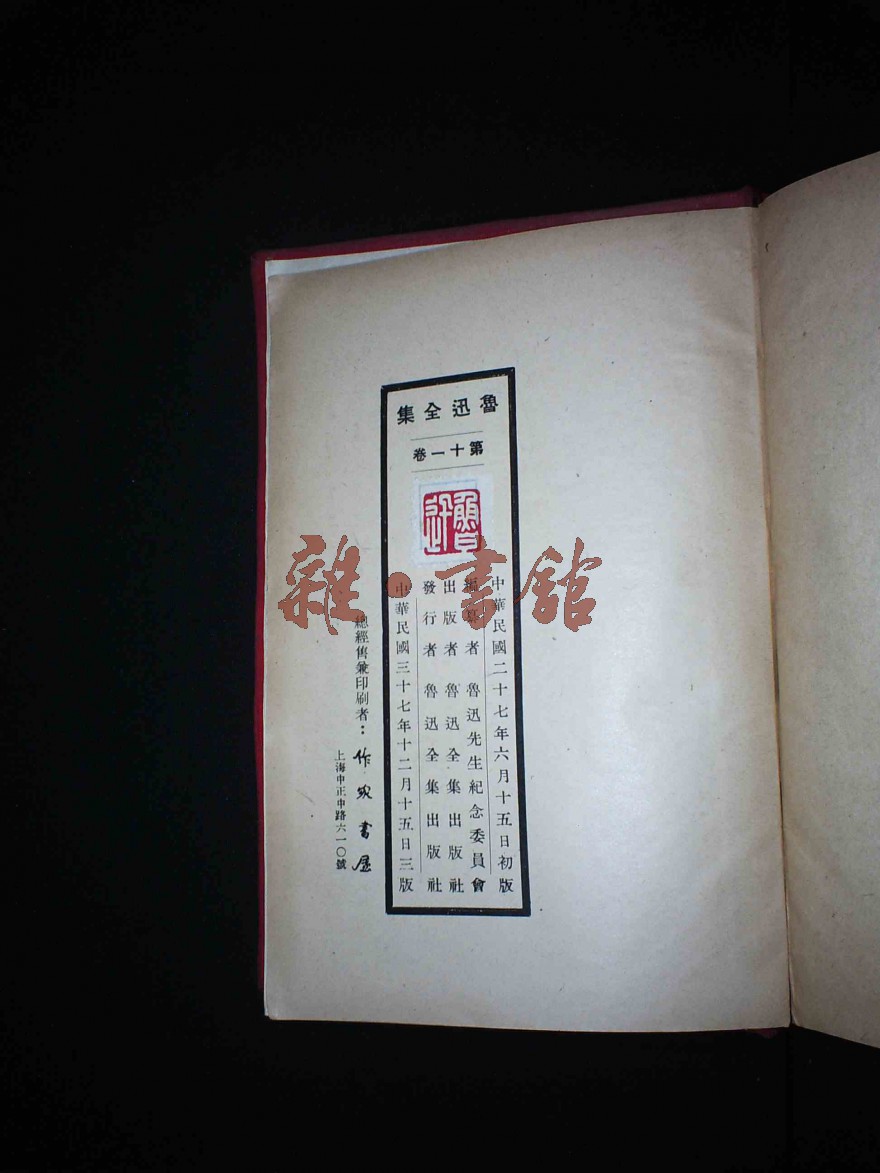 魯迅全集
第十一卷
魯迅
中華民國二十七年六月十五日初版
編纂者 魯迅先生紀念委員會
出版者 魯迅全集出版社
發行者 魯迅全集出版社
中華民國三十七年十二月十五日三版
總經售兼印刷者：作家書屋
上海中正中路六一〇號
雜·書館